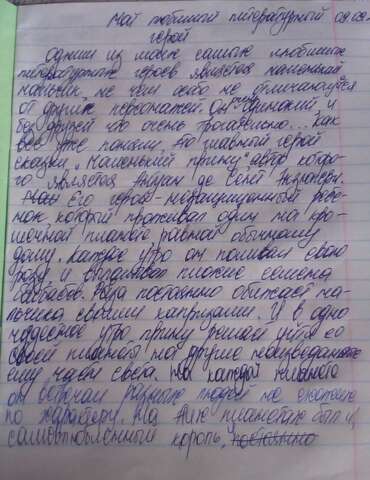 Мой любимый литературный 09.09.
герой
Одним из моих самых любимых
литературных героев является маленький
мальчик, не чем особо не отличающийся
от других персонажей. Он одинокий и
без друзей что очень трогательно... Как
все уже поняли, это главный герой
сказки "Маленький принц" автор которо-
го является Антуан де Сент Экзюпери.
Его герой - незащищённый ребё-
нок, который проживал один на кро-
шечной планете, равной обычному
дому. Каждое утро он поливал свою
розу и выпалывал плохие семена
баобабов. Роза постоянно обижает ма-
льчика своими капризами. И в одно
чудесное утро принц решает уйти со
своей планеты на другие неизведанные
ему части света. На каждой планете
он встречал разных людей не похожих
по характеру. На этих планетах был и
самовлюблённый король, постоянно